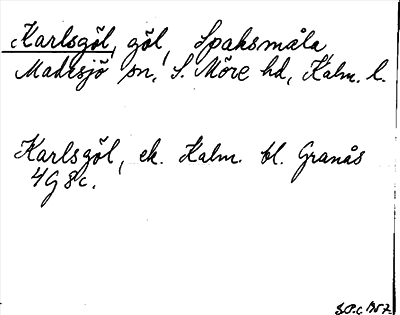 Karlsgöl, göl, Spaksmåla
Madesjö sn, S. Möre hd, Kalm. l.
Karlsgöl, ek. Kalm. bl. Granås
4G 8c.